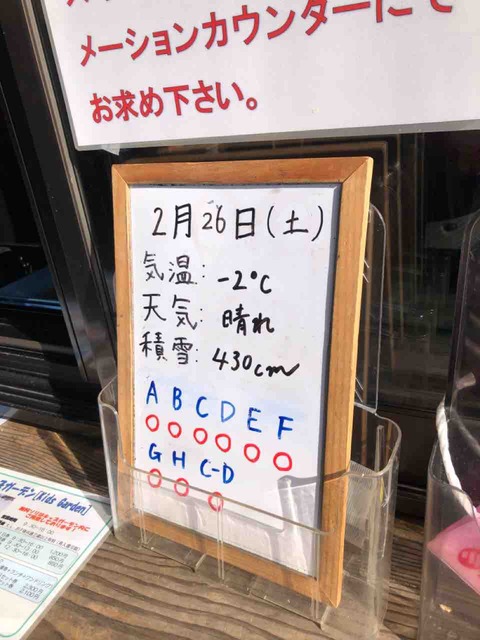 メーションカウンターにて
お求め下さい。
2月26日(土)
気温: -2℃
天気: 晴れ
積雪: 430cm
A B C D E F
○ ○ ○ ○ ○ ○
G H C-D
○ ○ ○
ガーデン(Kids Garden)